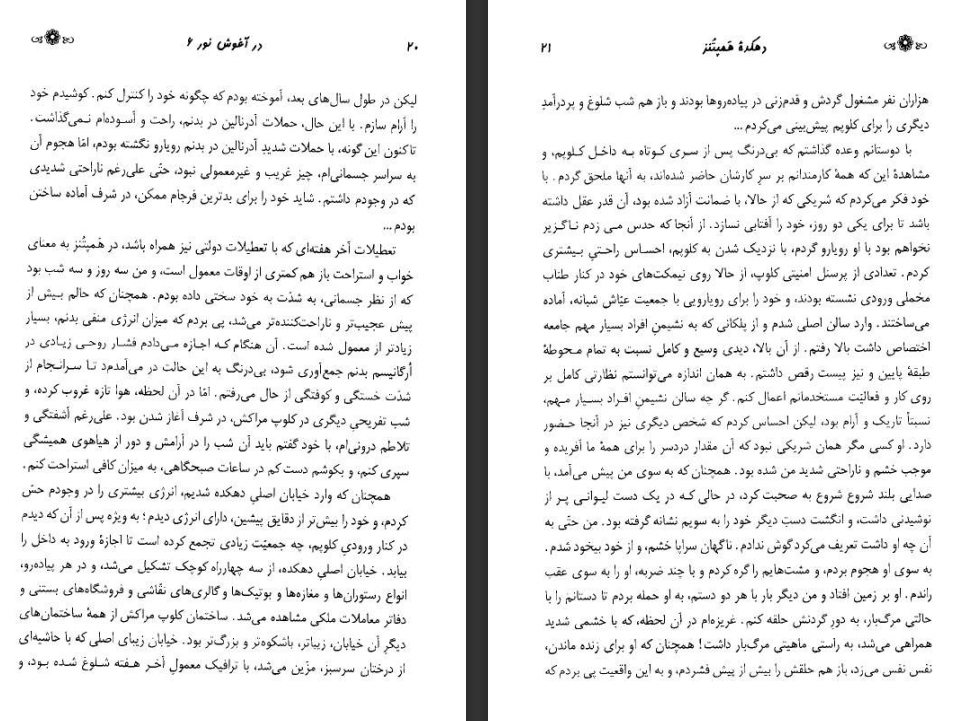 در آغوش نور ۶
۲۰
لیکن در طول سال‌های بعد، آموخته بودم که چگونه خود را کنترل کنم. کوشیدم خود
را آرام سازم. با این حال، حملات آدرنالین در بدنم، راحت و آسوده‌ام نـمی‌گذاشت.
تا کنون این گونه، با حملات شدیدِ آدرنالین در بدنم رویارو نگشته بودم، امّا هجوم آن
به سراسر جسمانی‌ام، چیز غریب و غیرمعمولی نبود، حتّی علی‌رغم ناراحتی شدیدی
که در وجودم داشتم. شاید خود را برای بدترین فرجام ممکن، در شرف آماده ساختن
بودم ...
تعطیلات آخر هفته‌ای که با تعطیلات دولتی نیز همراه باشد، در هَمپتُنز به معنای
خواب و استراحت باز هم کمتری از اوقات معمول است، و من سه روز و سه شب بود
که از نظر جسمانی، به شدّت به خود سختی داده بودم. همچنان که حالم بـیش از
پیش عجیب‌تر و ناراحت‌کننده‌تر می‌شد، پی بردم که میزان انرژی منفی بدنم، بسیار
زیادتر از معمول شده است. آن هنگام کـه اجـازه مـی‌دادم فشـار روحـی زیـادی در
اُرگانیسم بدنم جمع‌آوری شود، بی‌درنگ به این حالت در می‌آمدم تـا سـرانـجام از
شدّت خستگی و کوفتگی از حال می‌رفتم. امّا در آن لحظه، هوا تازه غروب کرده، و
شب تفریحیِ دیگری در کلوپ مراکش، در شرف آغاز شدن بود. علی‌رغم آشفتگی و
تلاطم درونی‌ام، با خود گفتم باید آن شب را در آرامش و دور از هیاهوی همیشگی
سپری کنم، و بکوشم دست کم در ساعات صبحگاهی، به میزان کافی استراحت کنم.
همچنان که وارد خیابان اصلیِ دهکده شدیم، انرژی بیشتری را در وجودم حسّ
کردم، و خود را بیش‌تر از دقایق پیشین، دارای انرژی دیدم؛ به ویژه پس از آن که دیدم
در کنار ورودیِ کلوپم، چه جمعیّت زیادی تجمع کرده است تا اجازهٔ ورود به داخل را
بیابد. خیابان اصلیِ دهکده، از سه چهارراه کوچک تشکیل می‌شد، و در هر پیاده‌رو،
انواع رستوران‌ها و مغازه‌ها و بوتیک‌ها و گالری‌های نقّاشی و فروشگاه‌های بستنی و
دفاتر معاملات ملکی مشاهده می‌شد. ساختمان کلوپ مراکش از همهٔ ساختمان‌های
دیگرِ آن خیابان، زیباتر، باشکوه‌تر و بزرگ‌تر بود. خیابان زیبای اصلی که با حاشیه‌ای
از درختان سرسبز، مزّین می‌شد، با ترافیک معمولِ آخـر هـفته شـلوغ شـده بـود، و
دهکدهٔ هَمپتُنز
۲۱
هزاران نفر مشغول گردش و قدم‌زنی در پیاده‌روها بودند و باز هم شب شلوغ و پردرآمدِ
دیگری را برای کلوپم پیش‌بینی می‌کردم ...
با دوستانم وعده گذاشتم که بی‌درنگ پس از سـری کـوتاه بـه داخـل کـلوپم، و
مشاهدهٔ این که همهٔ کارمندانم بر سرِ کارشان حاضر شده‌اند، به آنها ملحق گردم. با
خود فکر می‌کردم که شریکی که از حالا، با ضمانت آزاد شده بود، آن قدر عقل داشته
باشد تا برای یکی دو روز، خود را آفتابی نسازد. از آنجا که حدس مـی زدم نـاگـزیر
نخواهم بود با او رویارو گردم، با نزدیک شدن به کلوپم، احسـاس راحـتیِ بـیشتری
کردم. تعدادی از پرسنل امنیتی کلوپ، از حالا روی نیمکت‌های خود در کنار طناب
مخملی ورودی نشسته بودند، و خود را برای رویارویی با جمعیت عیّاش شبانه، آماده
می‌ساختند. وارد سالن اصلی شدم و از پلکانی که به نشیمنِ افراد بسیار مهم جامعه
اختصاص داشت بالا رفتم. از آن بالا، دیدی وسیع و کامل نسبت به تمام محـوطهٔ
طبقهٔ پایین و نیز پیست رقص داشتم. به همان اندازه می‌توانستم نظارتی کامل بر
روی کار و فعالیّت مستخدمانم اعمال کنم. گر چه سالن نشیمنِ افـراد بسیـار مـهم،
نسبتاً تاریک و آرام بود، لیکن احساس کردم که شخص دیگری نیز در آنجا حـضور
دارد. او کسی مگر همان شریکی نبود که آن مقدار دردسر را برای همهٔ ما آفریده و
موجب خشم و ناراحتی شدید من شده بود. همچنان که به سوی من پیش می‌آمد، با
صدایی بلند شروع شروع به صحبت کرد، در حالی کـه در یک دست لیـوانـی پـر از
نوشیدنی داشت، و انگشت دستِ دیگر خود را به سویم نشانه گرفته بود. من حتّی به
آن چه او داشت تعریف می‌کرد گوش ندادم. ناگهان سراپا خشم، و از خود بیخود شدم.
به سوی او هجوم بردم، و مشت‌هایم را گره کردم و با چند ضربه، او را به سوی عقب
راندم. او بر زمین افتاد و من دیگر بار با هر دو دستم، به او حمله بردم تا دستانم را با
حالتی مرگ‌بار، به دورِ گردنش حلقه کنم. غریزه‌ام در آن لحظه، که با خشمی شدید
همراهی می‌شد، به راستی ماهیتی مرگ‌بار داشت! همچنان که او برای زنده ماندن،
نفس نفس می‌زد، باز هم حلقش را بیش از پیش فشردم، و به این واقعیت پی بردم که